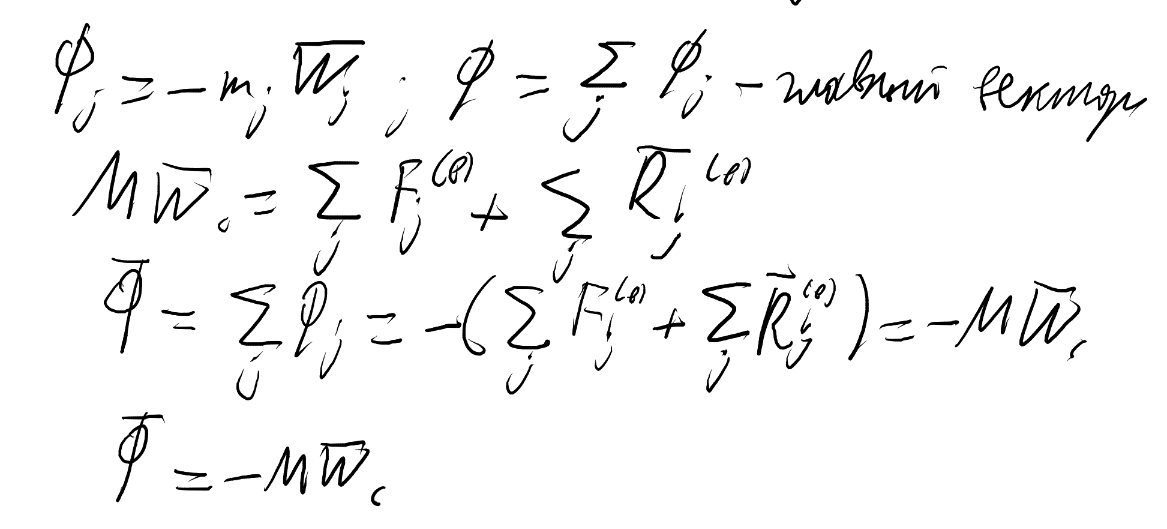 Φ_j = -m_j W̅_j ; Φ = Σ_j Φ_j - главный вектор
M W̅_c = Σ_j F_j^(e) + Σ_j R̅_j^(e)
Φ̅ = Σ_j Φ_j = -(Σ_j F_j^(e) + Σ_j R̅_j^(e)) = -M W̅_c
Φ̅ = -M W̅_c